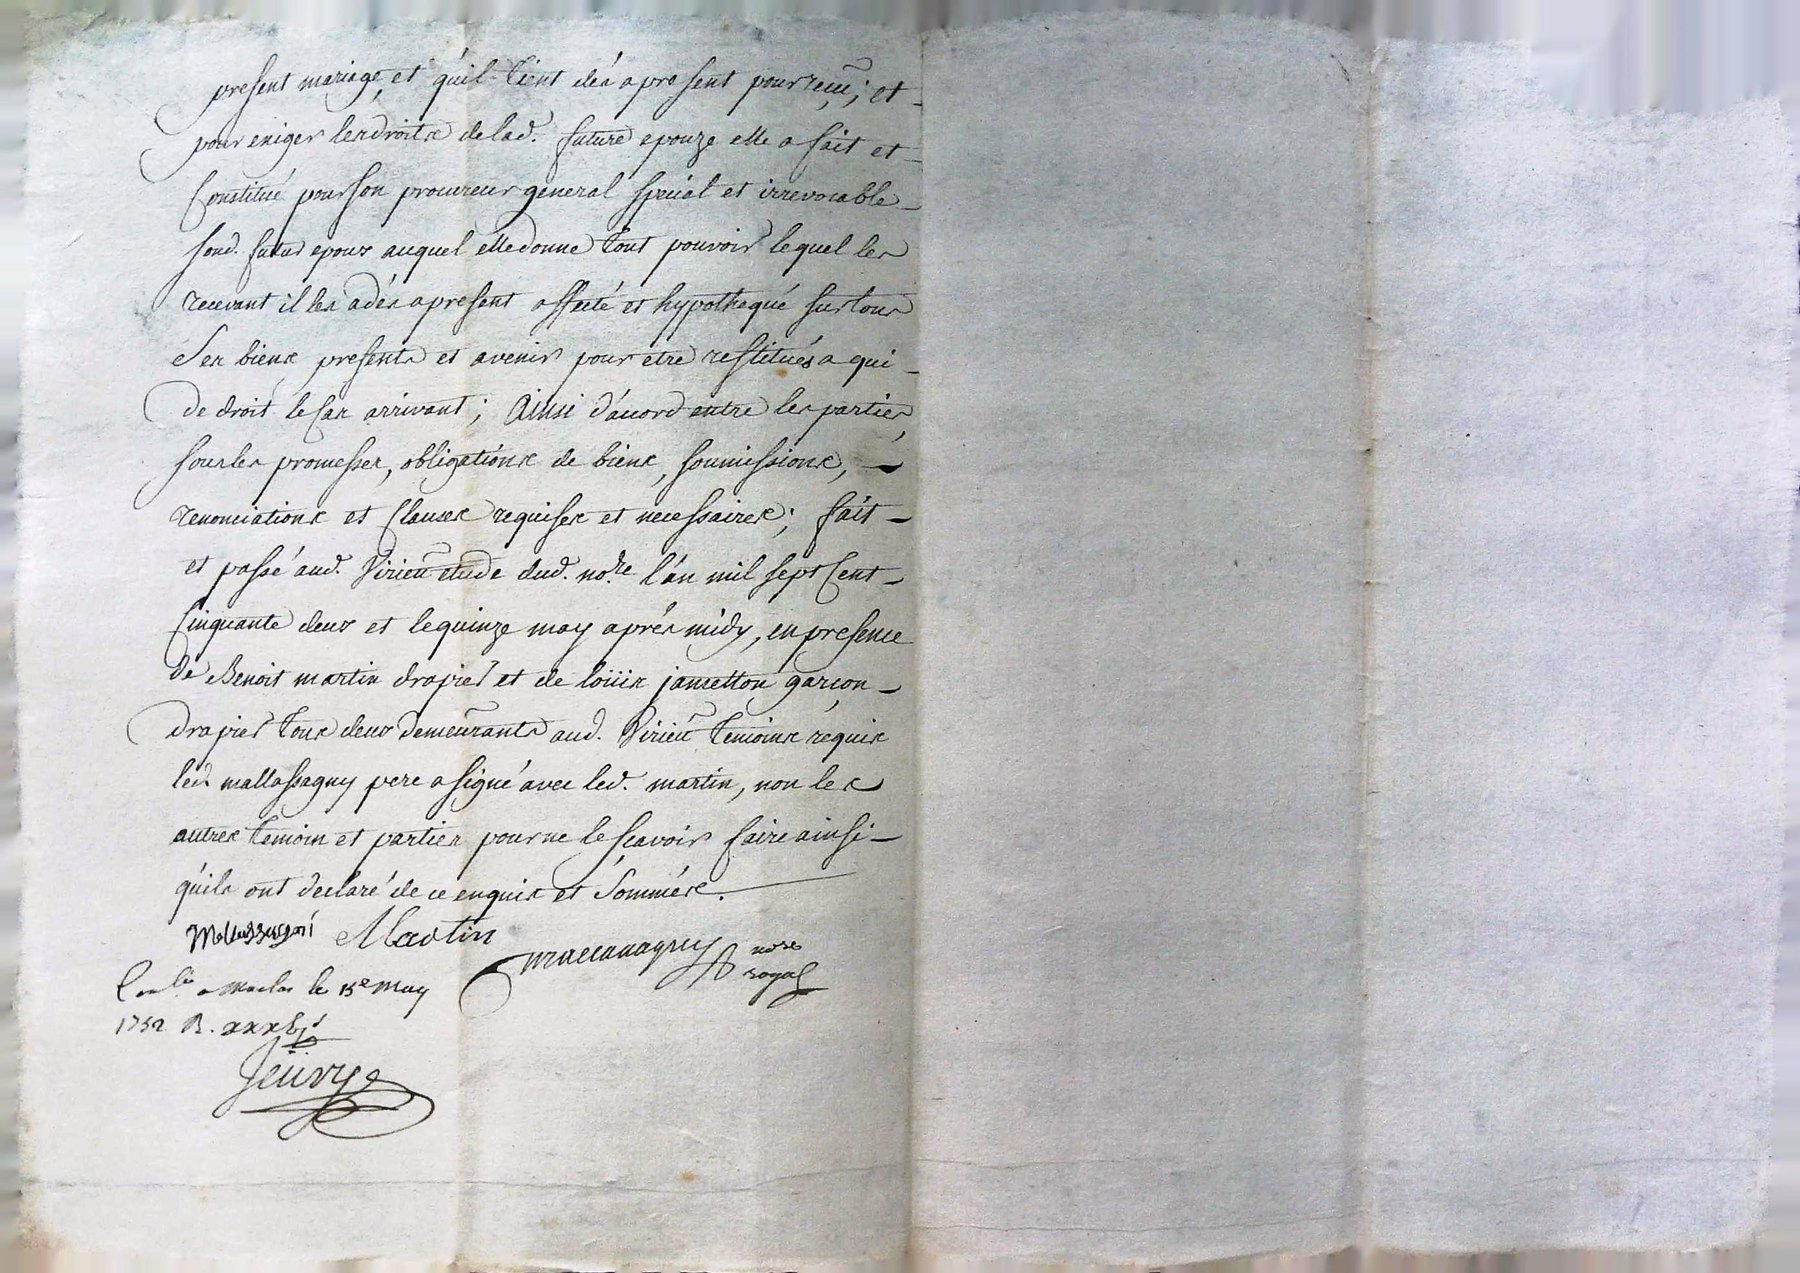 present mariage, et qu'il tient dés a present pour reçu; et
pour exiger les droits de lad. future epouze elle a fait et
Constitué pour son procureur general special et irrevocable
sond. futur epoux auquel elle donne tout pouvoir lequel les
recevant il les a dés a present affecté et hypothequé sur tous
Ses biens presents et avenir pour etre restitués a qui
de droit le Cas arrivant; Ainsi d'acord entre les parties,
sous les promesses, obligations de biens, soumissions,
renonciations et Clauses requises et necessaires; fait
et passé aud. Virieu étude dud. nore. l'an mil sept Cent
Cinquante deux et le quinze may aprés midy, en presence
de Benoit martin drapier et de loüis janetton garcon
drapier tous deux demeurants aud. Virieu temoins requis
led. mallassagny pere a signé avec led. martin, non les
autres temoin et parties pour ne le scavoir faire ainsi
qu'ils ont declaré de ce enquis et Sommés.
Mallassagni Martin
nore
royal
a Maclas le 15e May
1752 R. xxx